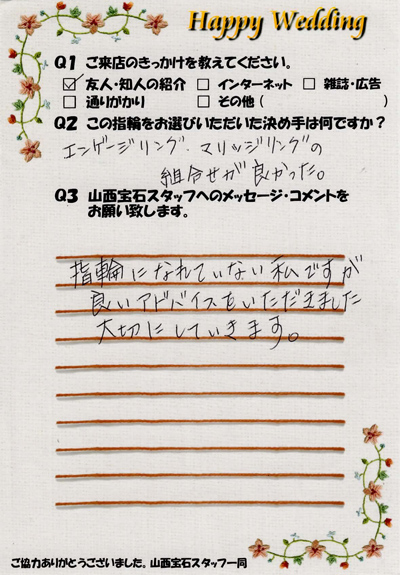 Happy Wedding
Q1 ご来店のきっかけを教えてください。
☑ 友人・知人の紹介 □ インターネット □ 雑誌・広告
□ 通りがかり □ その他( )
Q2 この指輪をお選びいただいた決め手は何ですか?
エンゲージリング・マリッジリングの
組合せが良かった。
Q3 山西宝石スタッフへのメッセージ・コメントを
お願い致します。
指輪になれていない私ですが
良いアドバイスをいただきました
大切にしていきます。
ご協力ありがとうございました。山西宝石スタッフ一同